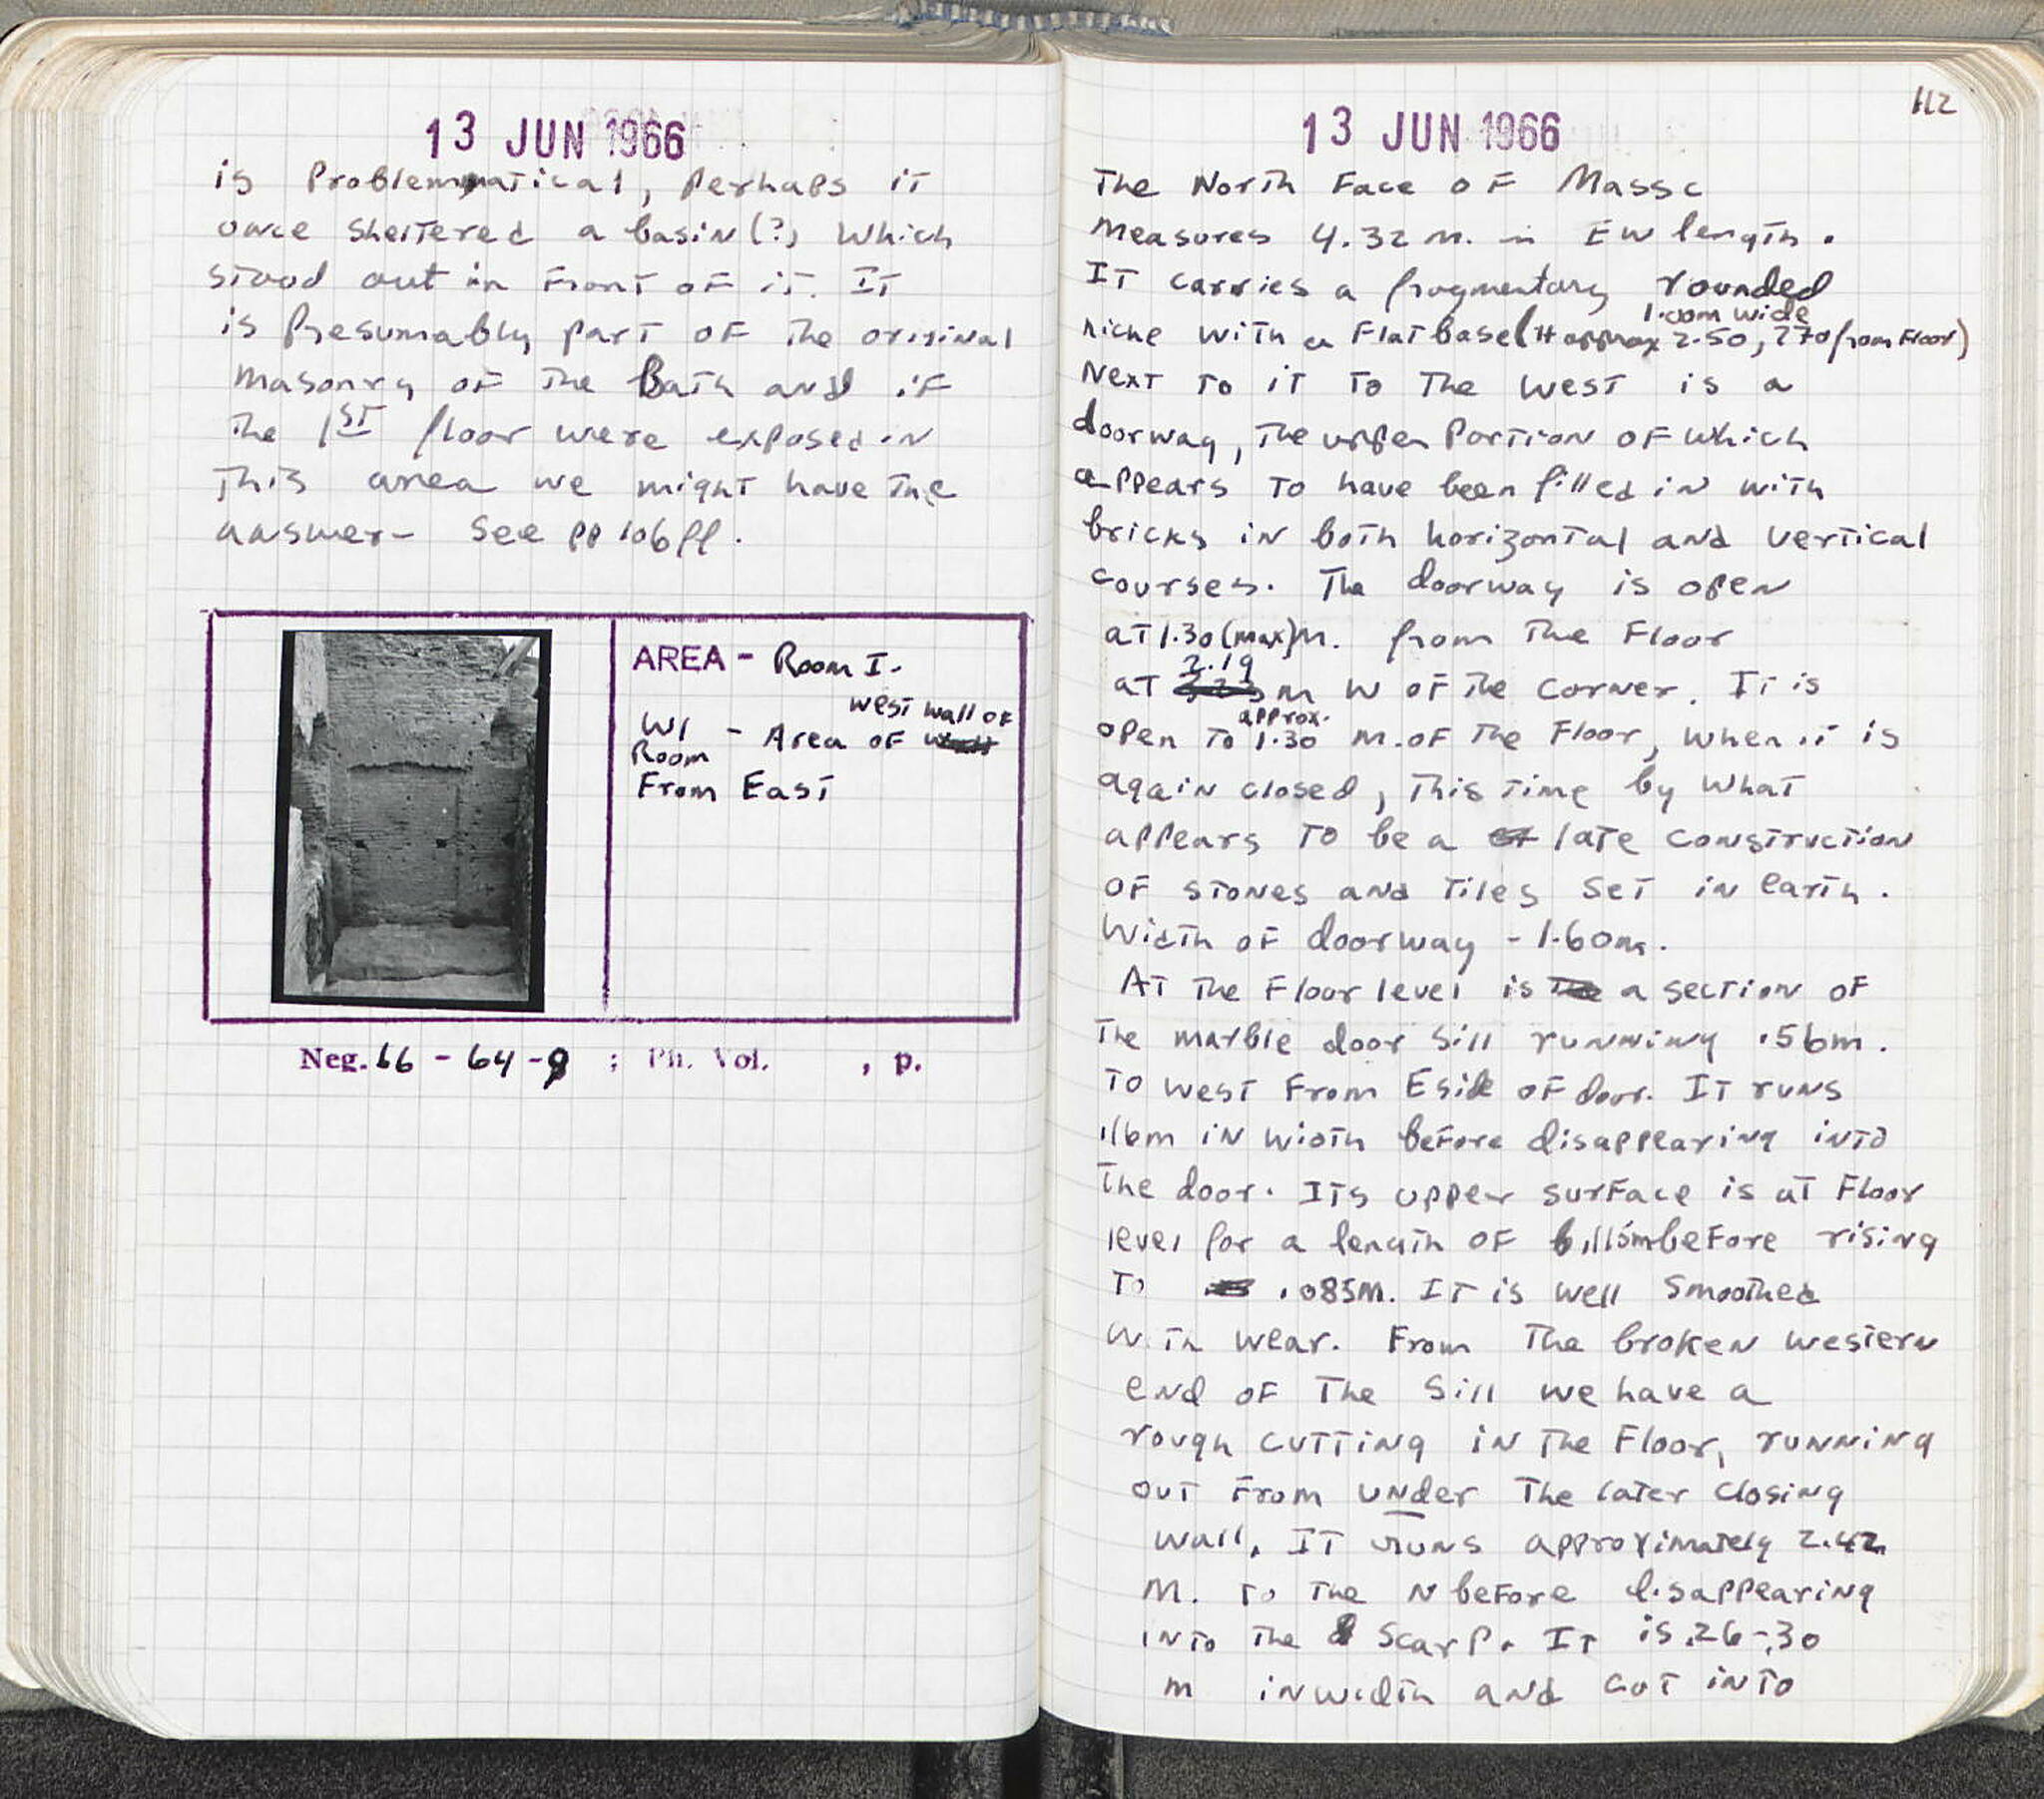 13 JUN 1966
is Problemmatical, Perhaps it
once sheltered a basin(?) which
stood out in front of it. It
is Presumably part of the original
masonry of the Bath and if
the 1ST floor were exposed in
This area we might have the
answer- See pp 106ff.
AREA - Room I.
west wall of
W1 - Area of
Room
From East
Neg. 66 - 64 - 9 ; Ph. Vol. , p.
112
13 JUN 1966
The North Face of Mass c
measures 4.32 m. in EW length.
It carries a fragmentary rounded
1.00m wide
niche with a Flat base (H approx 2.50, 270 from Floor)
Next to it to the west is a
doorway, the upper portion of which
appears to have been filled in with
bricks in both horizontal and vertical
courses. The doorway is open
at 1.30(max)m. from the Floor
2.19
at m W of the corner. It is
approx.
open to 1.30 m. of the Floor, when it is
again closed, This time by what
appears to be a late construction
of stones and tiles set in earth.
Width of doorway - 1.60m.
At the Floor level is a section of
the marble door sill running .56m.
to west From E side of door. It runs
.16m in width before disappearing into
the door. Its upper surface is at Floor
level for a length of before rising
To .085m. It is well smoothed
with wear. From the broken western
end of the sill we have a
rough cutting in the Floor, running
out from under the later closing
wall. It runs approximately 2.42
m. to the N before disappearing
into the scarp. It is .26-.30
m in width and cut into